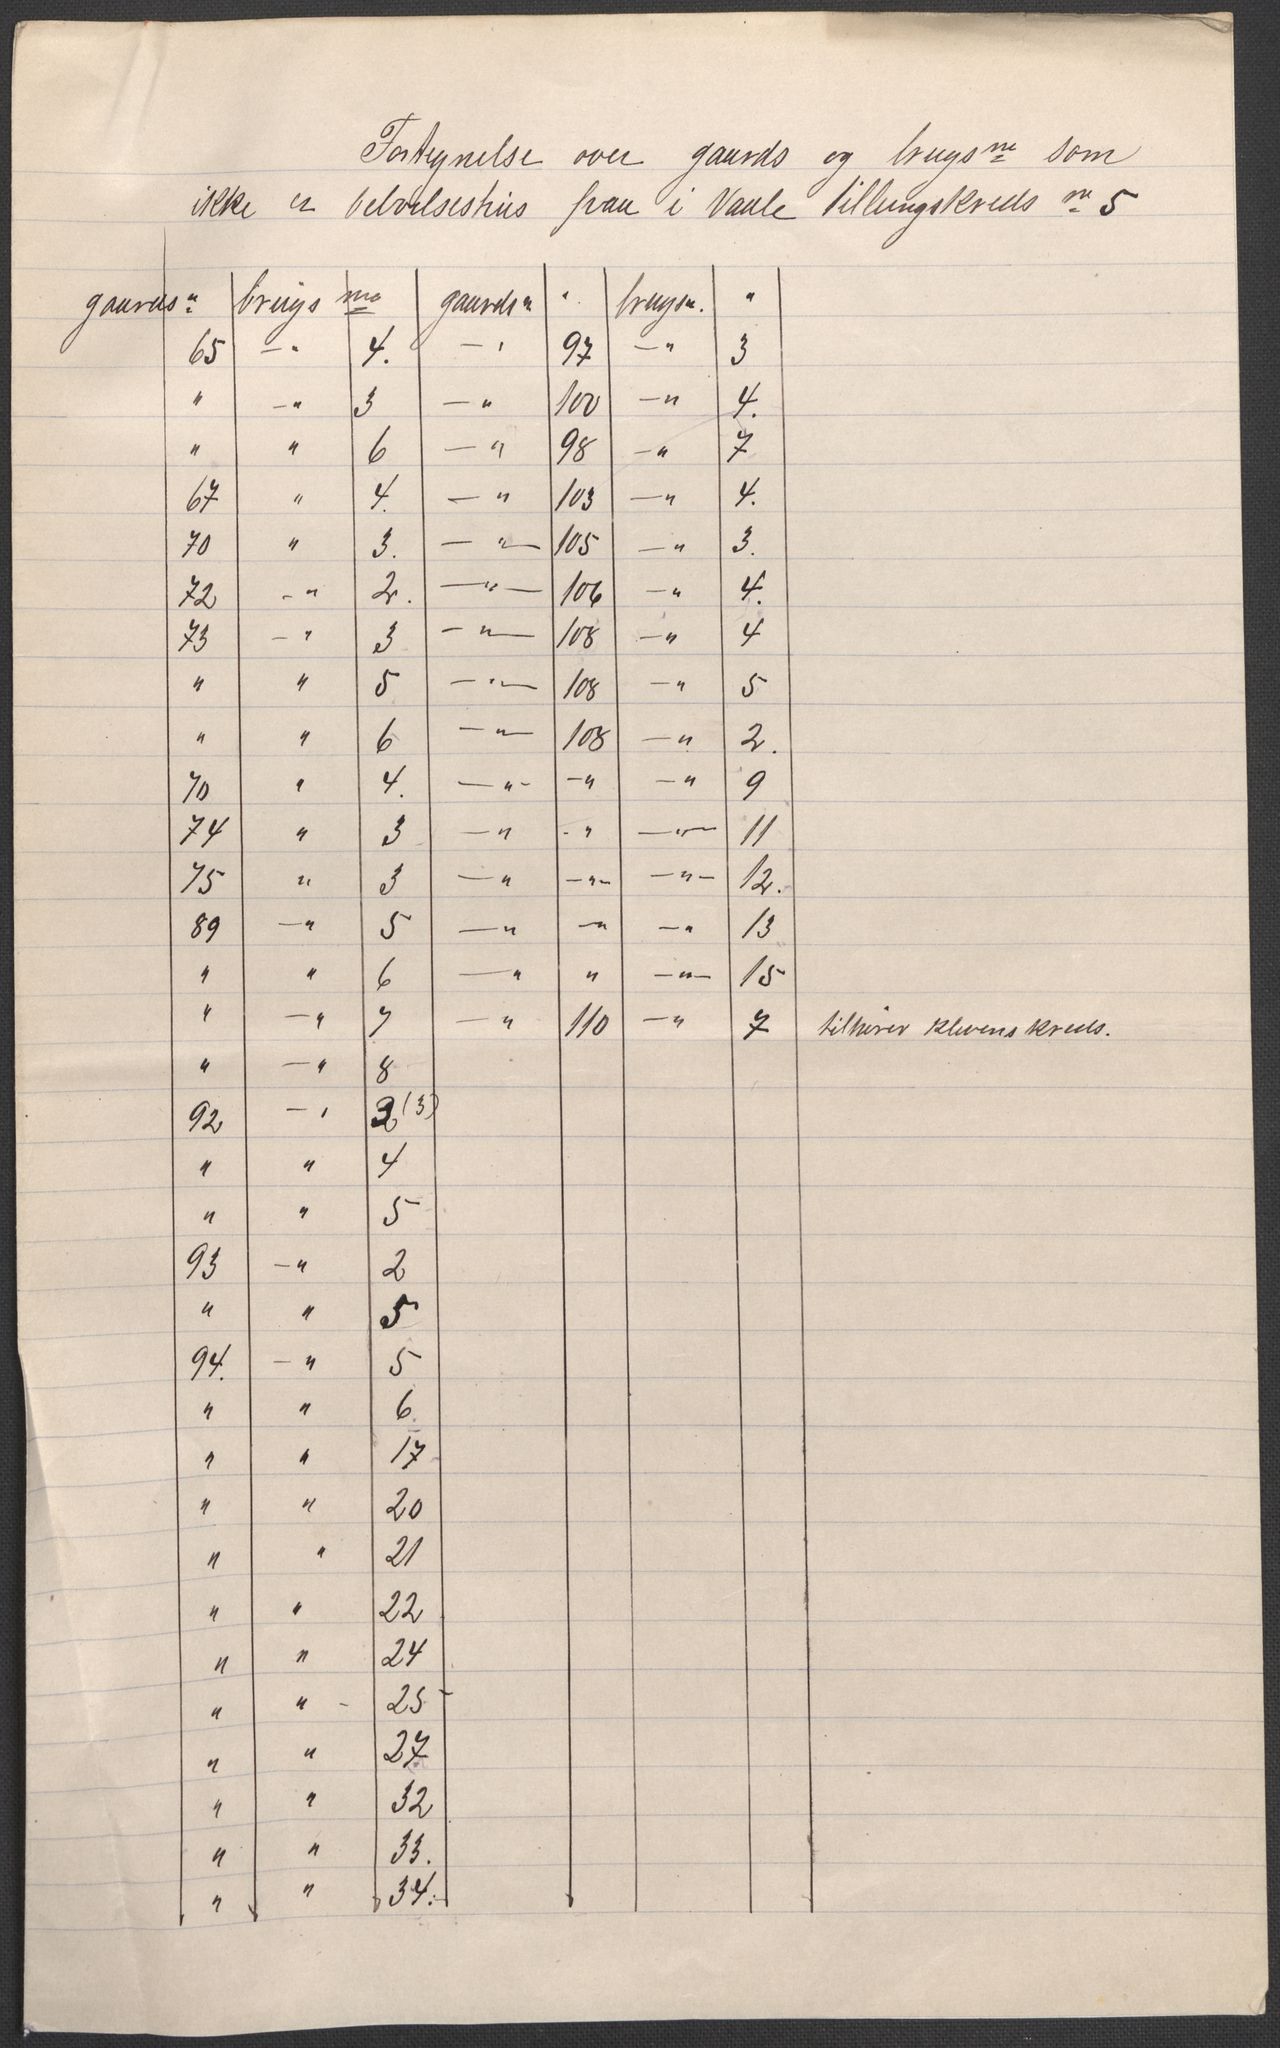 Fortegnelse over gaards og brugs no som
ikke er beboelseshus paa i Vanle tillingskreds no 5
gaards n brugs no gaards n " brugs n. "
65 — " 4. — " 97 — " 3
" — " 3 — " 100 — " 4.
" " 6 — " 98 — " 7
67 " 4. — " 103 — " 4.
70 " 3. — " — 105 — " 3.
72 - " 2. — " — 106 — " 4.
73 - " 3 — " — 108 — " 4
" " 5 — " — 108 — " 5
" " 6 — " — 108 — " 2.
70 " 4. — " - — " — " 9
74 " 3 — " - " — " — 11
75 " 3 — " — " — — " - 12.
89 — " 5 — " — " — " 13
" " 6 — " " — " — 15
" — " 7 — " 110 — " 7 tilhører Klevens kreds.
" — " 8
92 — " 2 (3)
" " 4
" " 5
93 — " 2
" " 5
94. — " 5
" " 6
" " 17
" " 20
" " 21
" " 22
" " 24
" " - 25 -
" " 27
" " 32
" " 33.
" " 34.